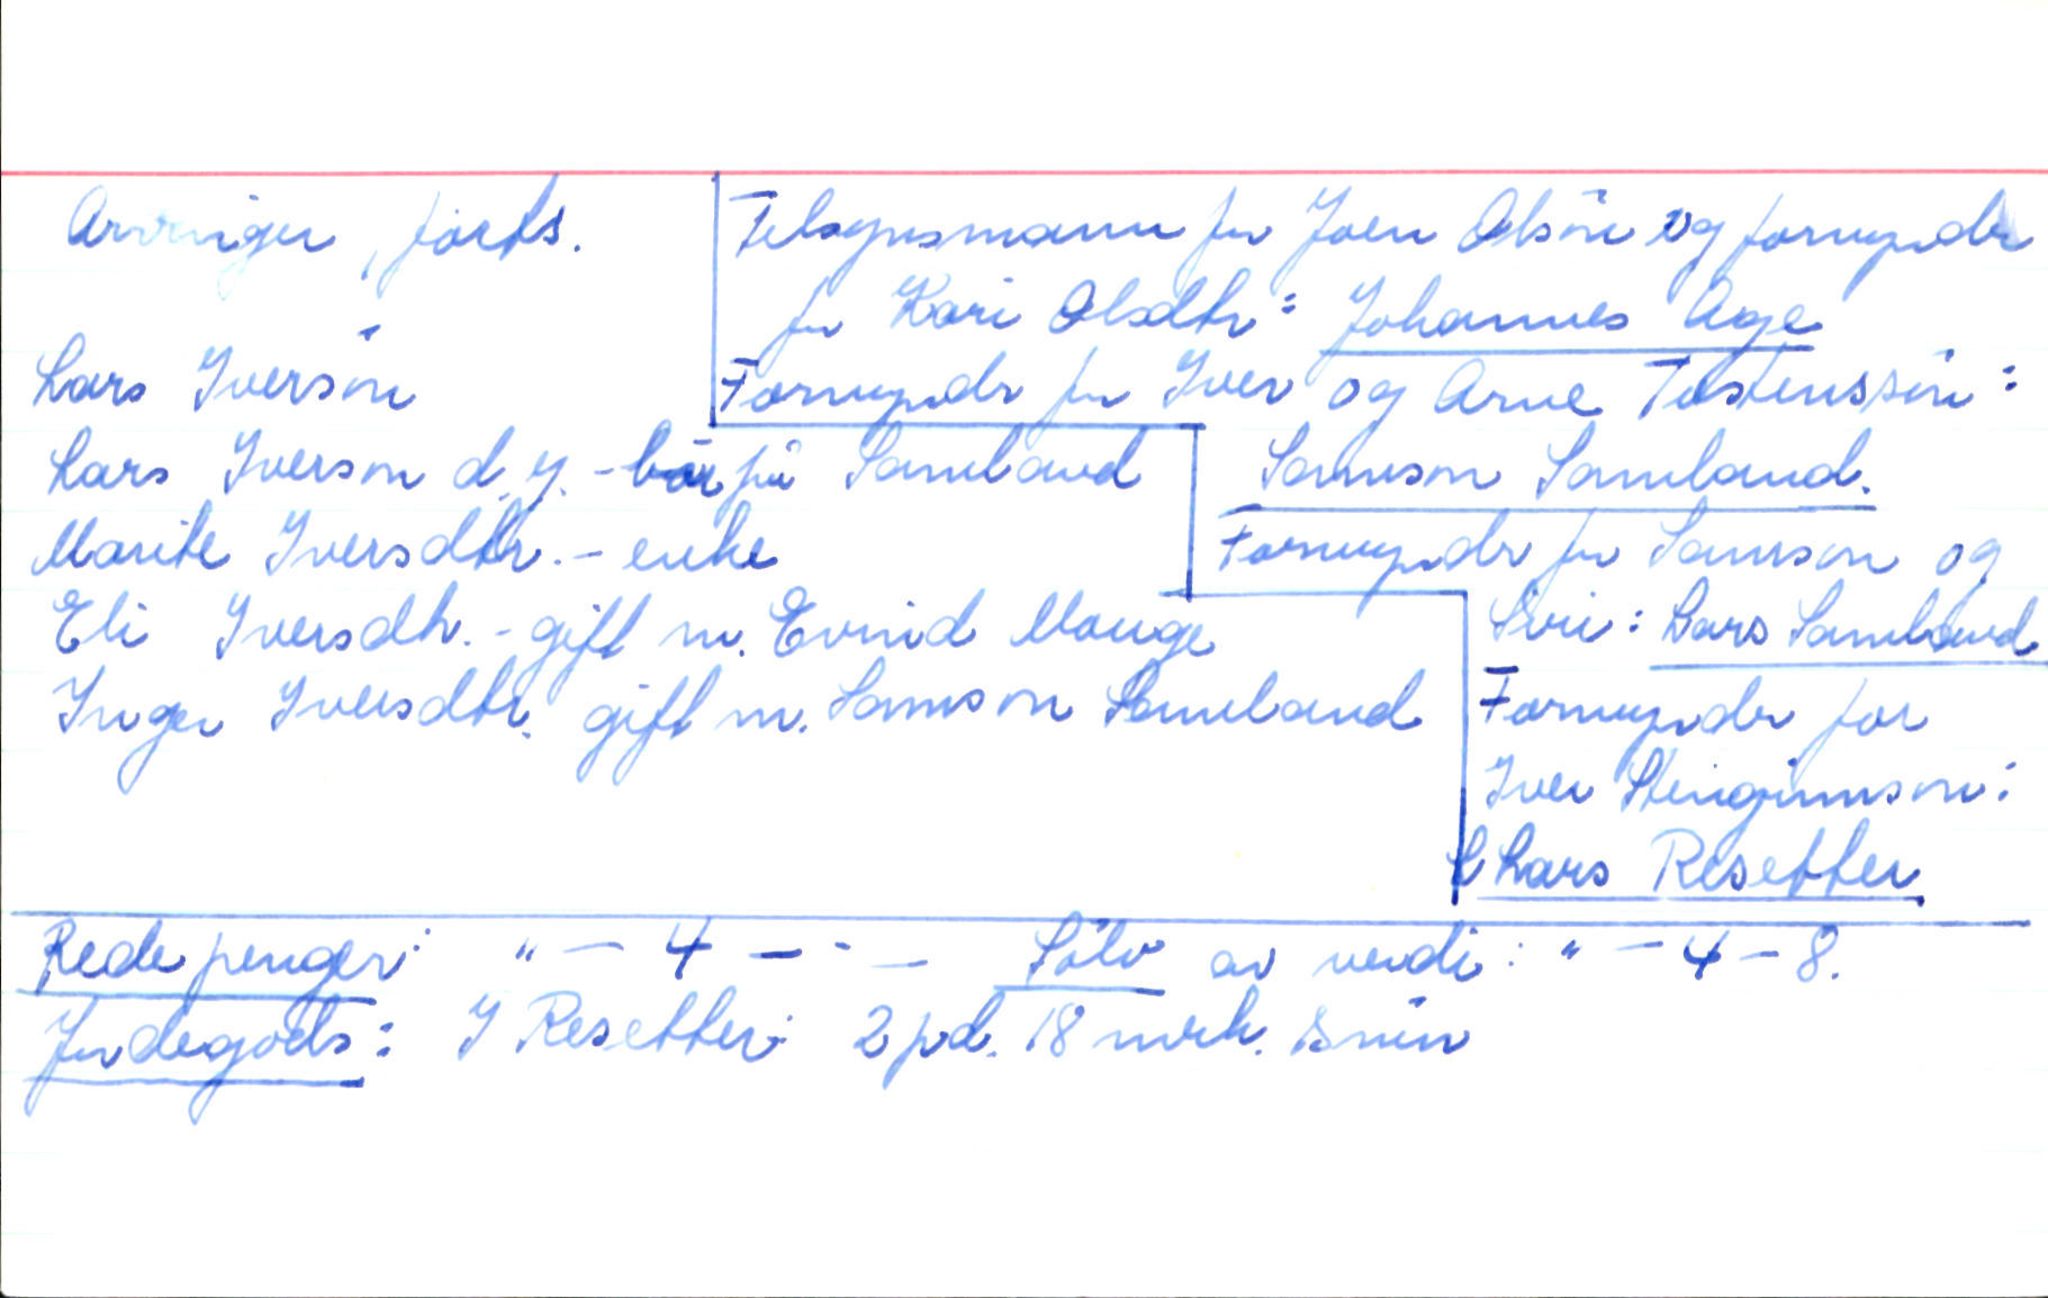 Arvinger, forts.
Lars Iversön
Lars Iverson d.y. - bor på Samland
Marite Iversdtr. - enke
Eli Iversdtr. - gift m. Evind Mauge
Inger Iversdtr. gift m. Samson Samland
Tilsynsmann for Joen Olsön og formyndr
for Kari Olsdtr: Johannes Age
Formyndr for Iver og Arne Tostenssön:
Samson Samland.
Formyndr for Samson og
Siri: Lars Samland
Formyndr for
Iver Steingrimson:
Lars Resetter
Redepenger: " - 4 - " - Sölv av verdi: " - 4 - 8.
Jordegods: I Resetter: 2 pd. 18 mrk. Smör